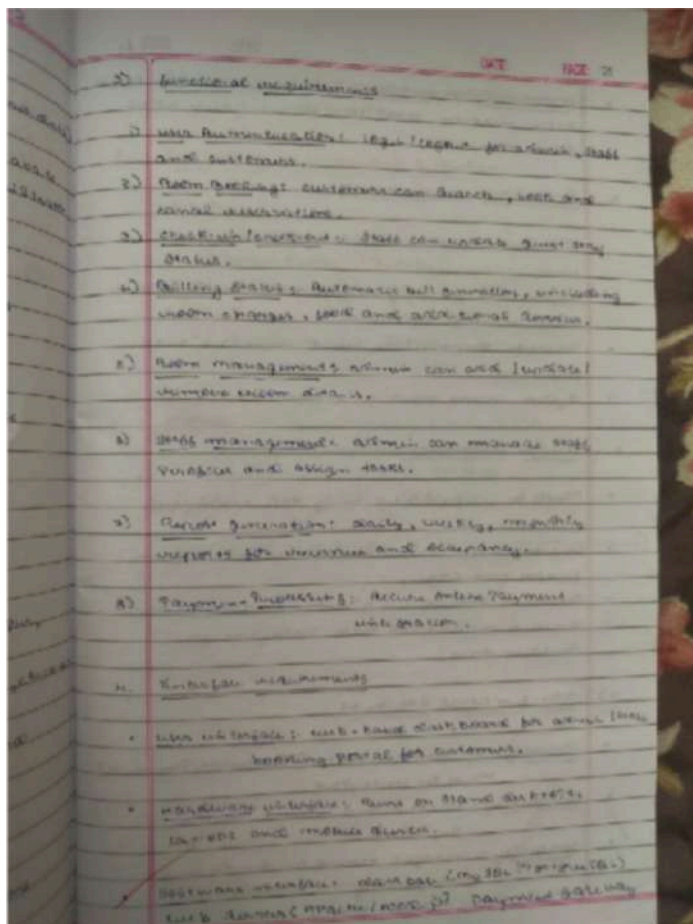 DATE PAGE 21
3) Functional requirements
1) User Authentication: login/logout for admin, staff
and customers.
2) Room Booking: customers can search, book and
cancel reservations.
3) check-in/check-out: staff can update guest stay
status.
4) Billing: Automatic bill generation, including
room charges, food and additional services.
5) Room management: admin can add/update/
remove room details.
6) staff management: admin can manage staff
profiles and assign tasks.
7) Report generation: daily, weekly, monthly
reports for revenue and occupancy.
8) Payment Processing: secure online Payment
integration.
4. Interface requirements
• user interface: web-based dashboard for admin/staff
booking portal for customers.
• Hardware interface: Runs on
laptops and mobile devices.
software interface: database (MySQL/
web server (Apache/ Payment gateway